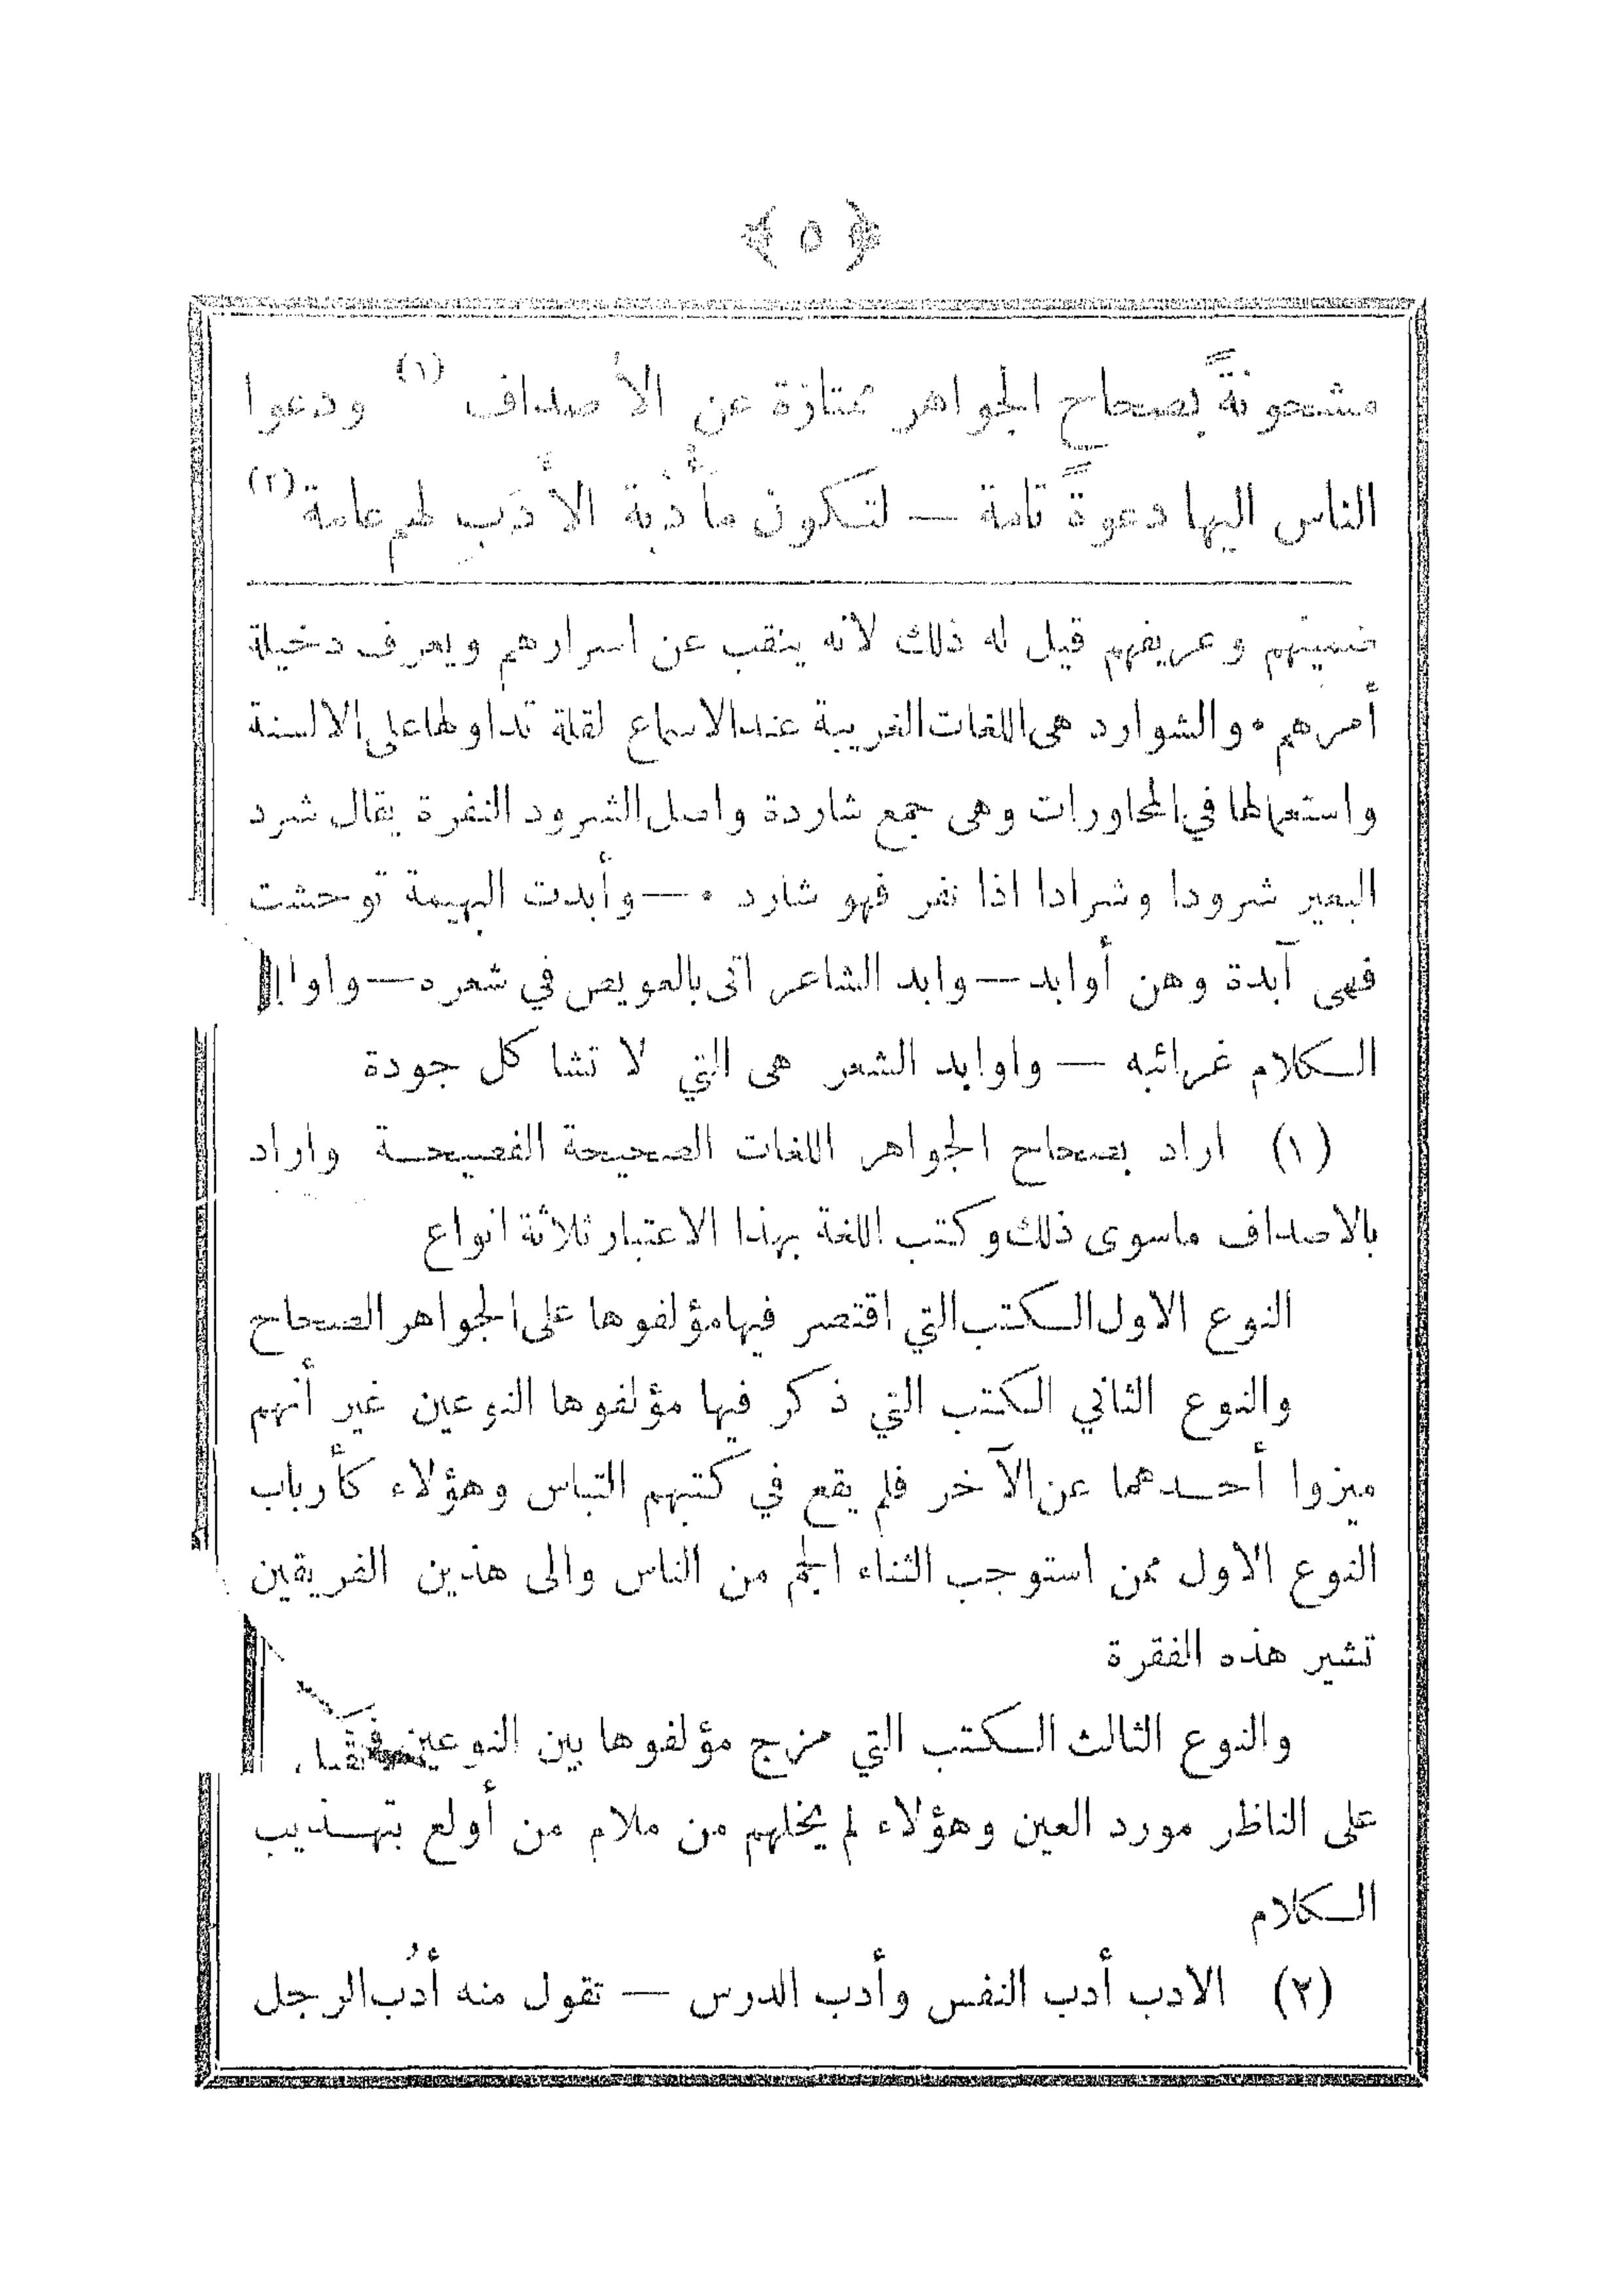 ﴿ ٥ ﴾
مشحونةً بصحاح الجواهر ممتازة عن الأصداف (١) ودعوا
الناس اليها دعوةً تامة — لتكون مأدُبة الأدَب لهم عامة (٢)
ضمينهم وعريفهم قيل له ذلك لانه ينقب عن اسرارهم ويعرف دخيلة
أمرهم • والشوارد هى اللغات الغريبة عند الاسماع لقلة تداولها على الالسنة
واستعمالها في المحاورات وهى جمع شاردة واصل الشرود النفرة يقال شرد
البعير شرودا وشرادا اذا نفر فهو شارد • — وأبدت البهيمة توحشت
فهى آبدة وهن أوابد — وابد الشاعر اتى بالعويص في شعره —
الكلام غرائبه — واوابد الشعر هى التي لا تشاكل جودة
(١) اراد بصحاح الجواهر اللغات الصحيحة الفصيحة واراد
بالاصداف ماسوى ذلك وكتب اللغة بهذا الاعتبار ثلاثة انواع
النوع الاول الكتب التي اقتصر فيها مؤلفوها على الجواهر الصحاح
والنوع الثاني الكتب التي ذكر فيها مؤلفوها النوعين غير أنهم
ميزوا أحدهما عن الآخر فلم يقع في كتبهم التباس وهؤلاء كأرباب
النوع الاول ممن استوجب الثناء الجم من الناس والى هذين الفريقين
تشير هذه الفقرة
والنوع الثالث الكتب التي مزج مؤلفوها بين النوعين
على الناظر مورد العين وهؤلاء لم يخلهم من ملام من أولع بتهذيب
الكلام
(٢) الادب أدب النفس وأدب الدرس — تقول منه أدُب الرجل